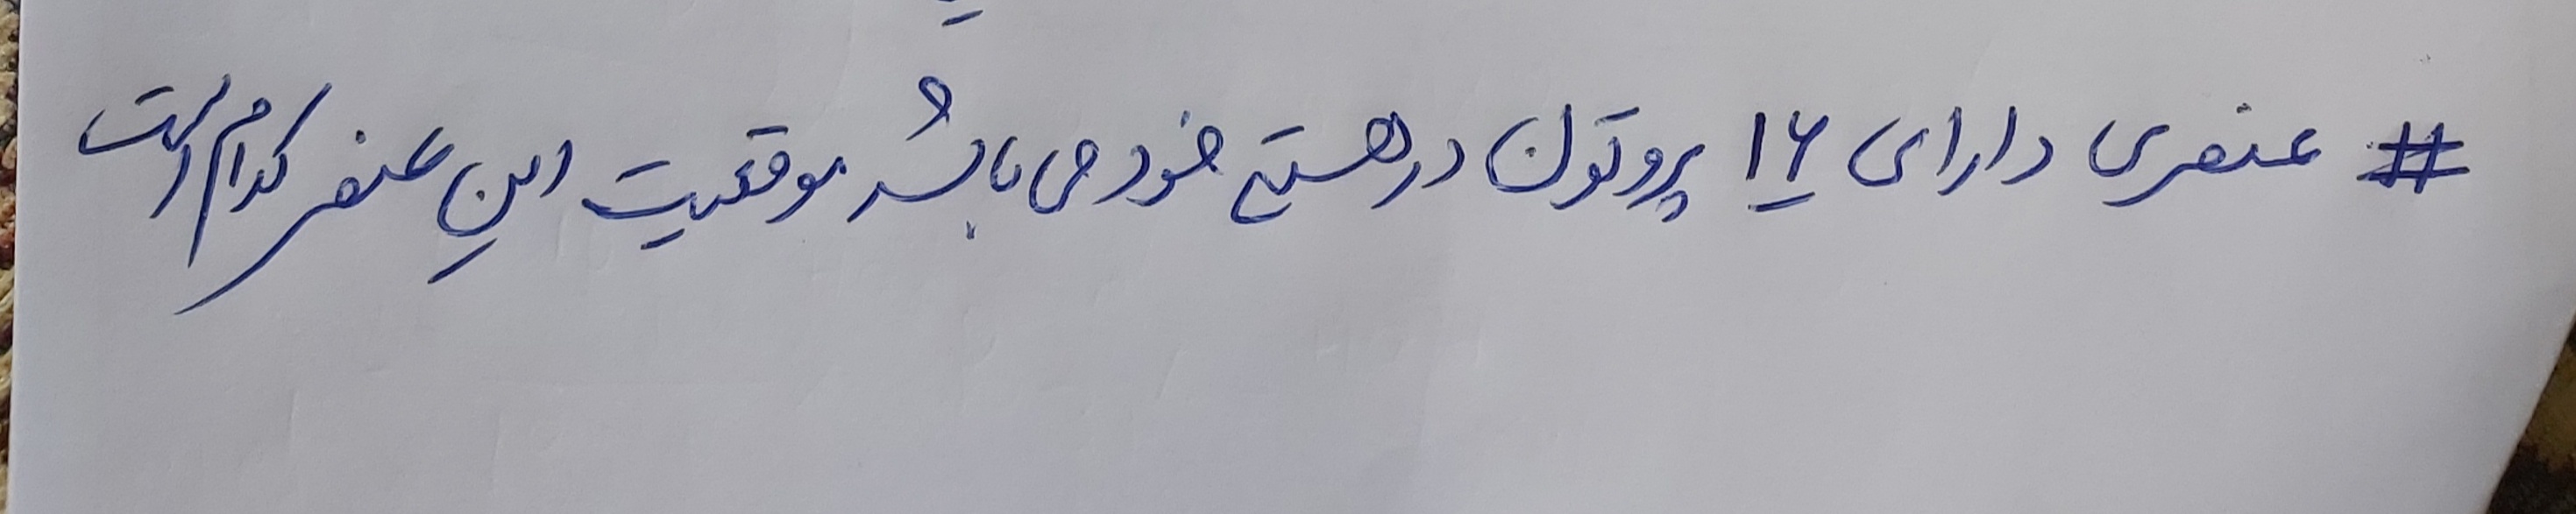 # عنصری دارای ۱۶ پروتون در هسته خود می باشد موقعیت این عنصر کدام است